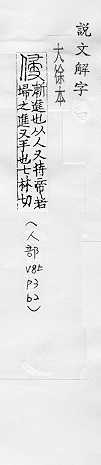 說文解字
大徐本
侵
漸進也从人又持帚若
埽之進又手也七林切
(人部
P3
b2)